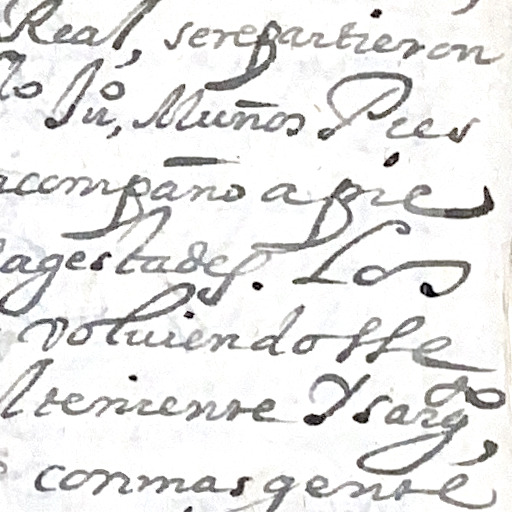 Real, serepartieron
lo Ju.º Muños Pres
acompaño a pie
agestades. Los
volviendosse
l teniente Ysargto,
con mas gente